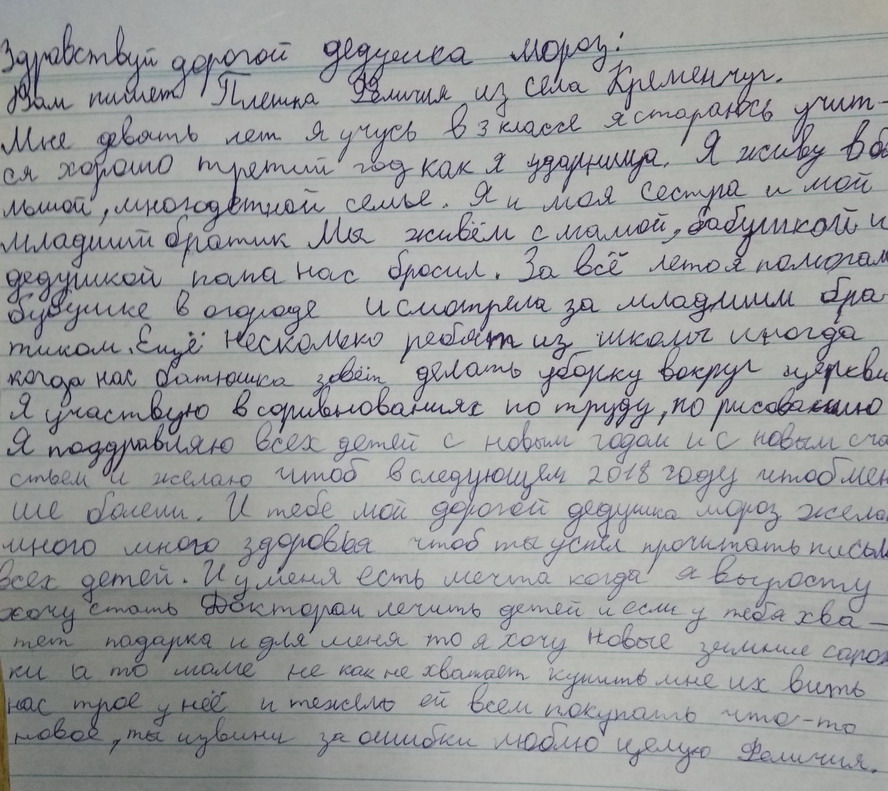 Здравствуй дорогой дедушка мороз!
Вам пишет Плешка Феличия из села Кременчуг.
Мне девять лет я учусь в 3 классе я стараюсь учит-
ся хорошо третий год как я ударница. Я живу в бо
льшой, многодетной семье. Я и моя сестра и мой
младший братик Мы живём с мамой, бабушкой и
дедушкой папа нас бросил. За всё лето я помогала
бубушке в огороде и смотрела за младшим бра-
тиком. Ещё несколько ребят из школы иногда
когда нас батюшка зовёт делать уборку вокруг церкви
Я участвую в соривнованиях по труду, по рисованию
Я поздравляю всех детей с новым годом и с новым сча
стьем и желаю чтоб в следующем 2018 году чтоб мен
ше болели. И тебе мой дорогой дедушка мороз желаю
много много здоровья чтоб ты успел прочитать письма
всех детей. И у меня есть мечта когда я выросту
хочу стать Доктором лечить детей и если у тебя хва-
тет падарка и для меня то я хочу новые зимние сапож
ки а то маме не как не хватает купить мне их вить
нас трое у неё и тежело ей всем покупать что-то
новое, ты извини за ошибки люблю целую Феличия.